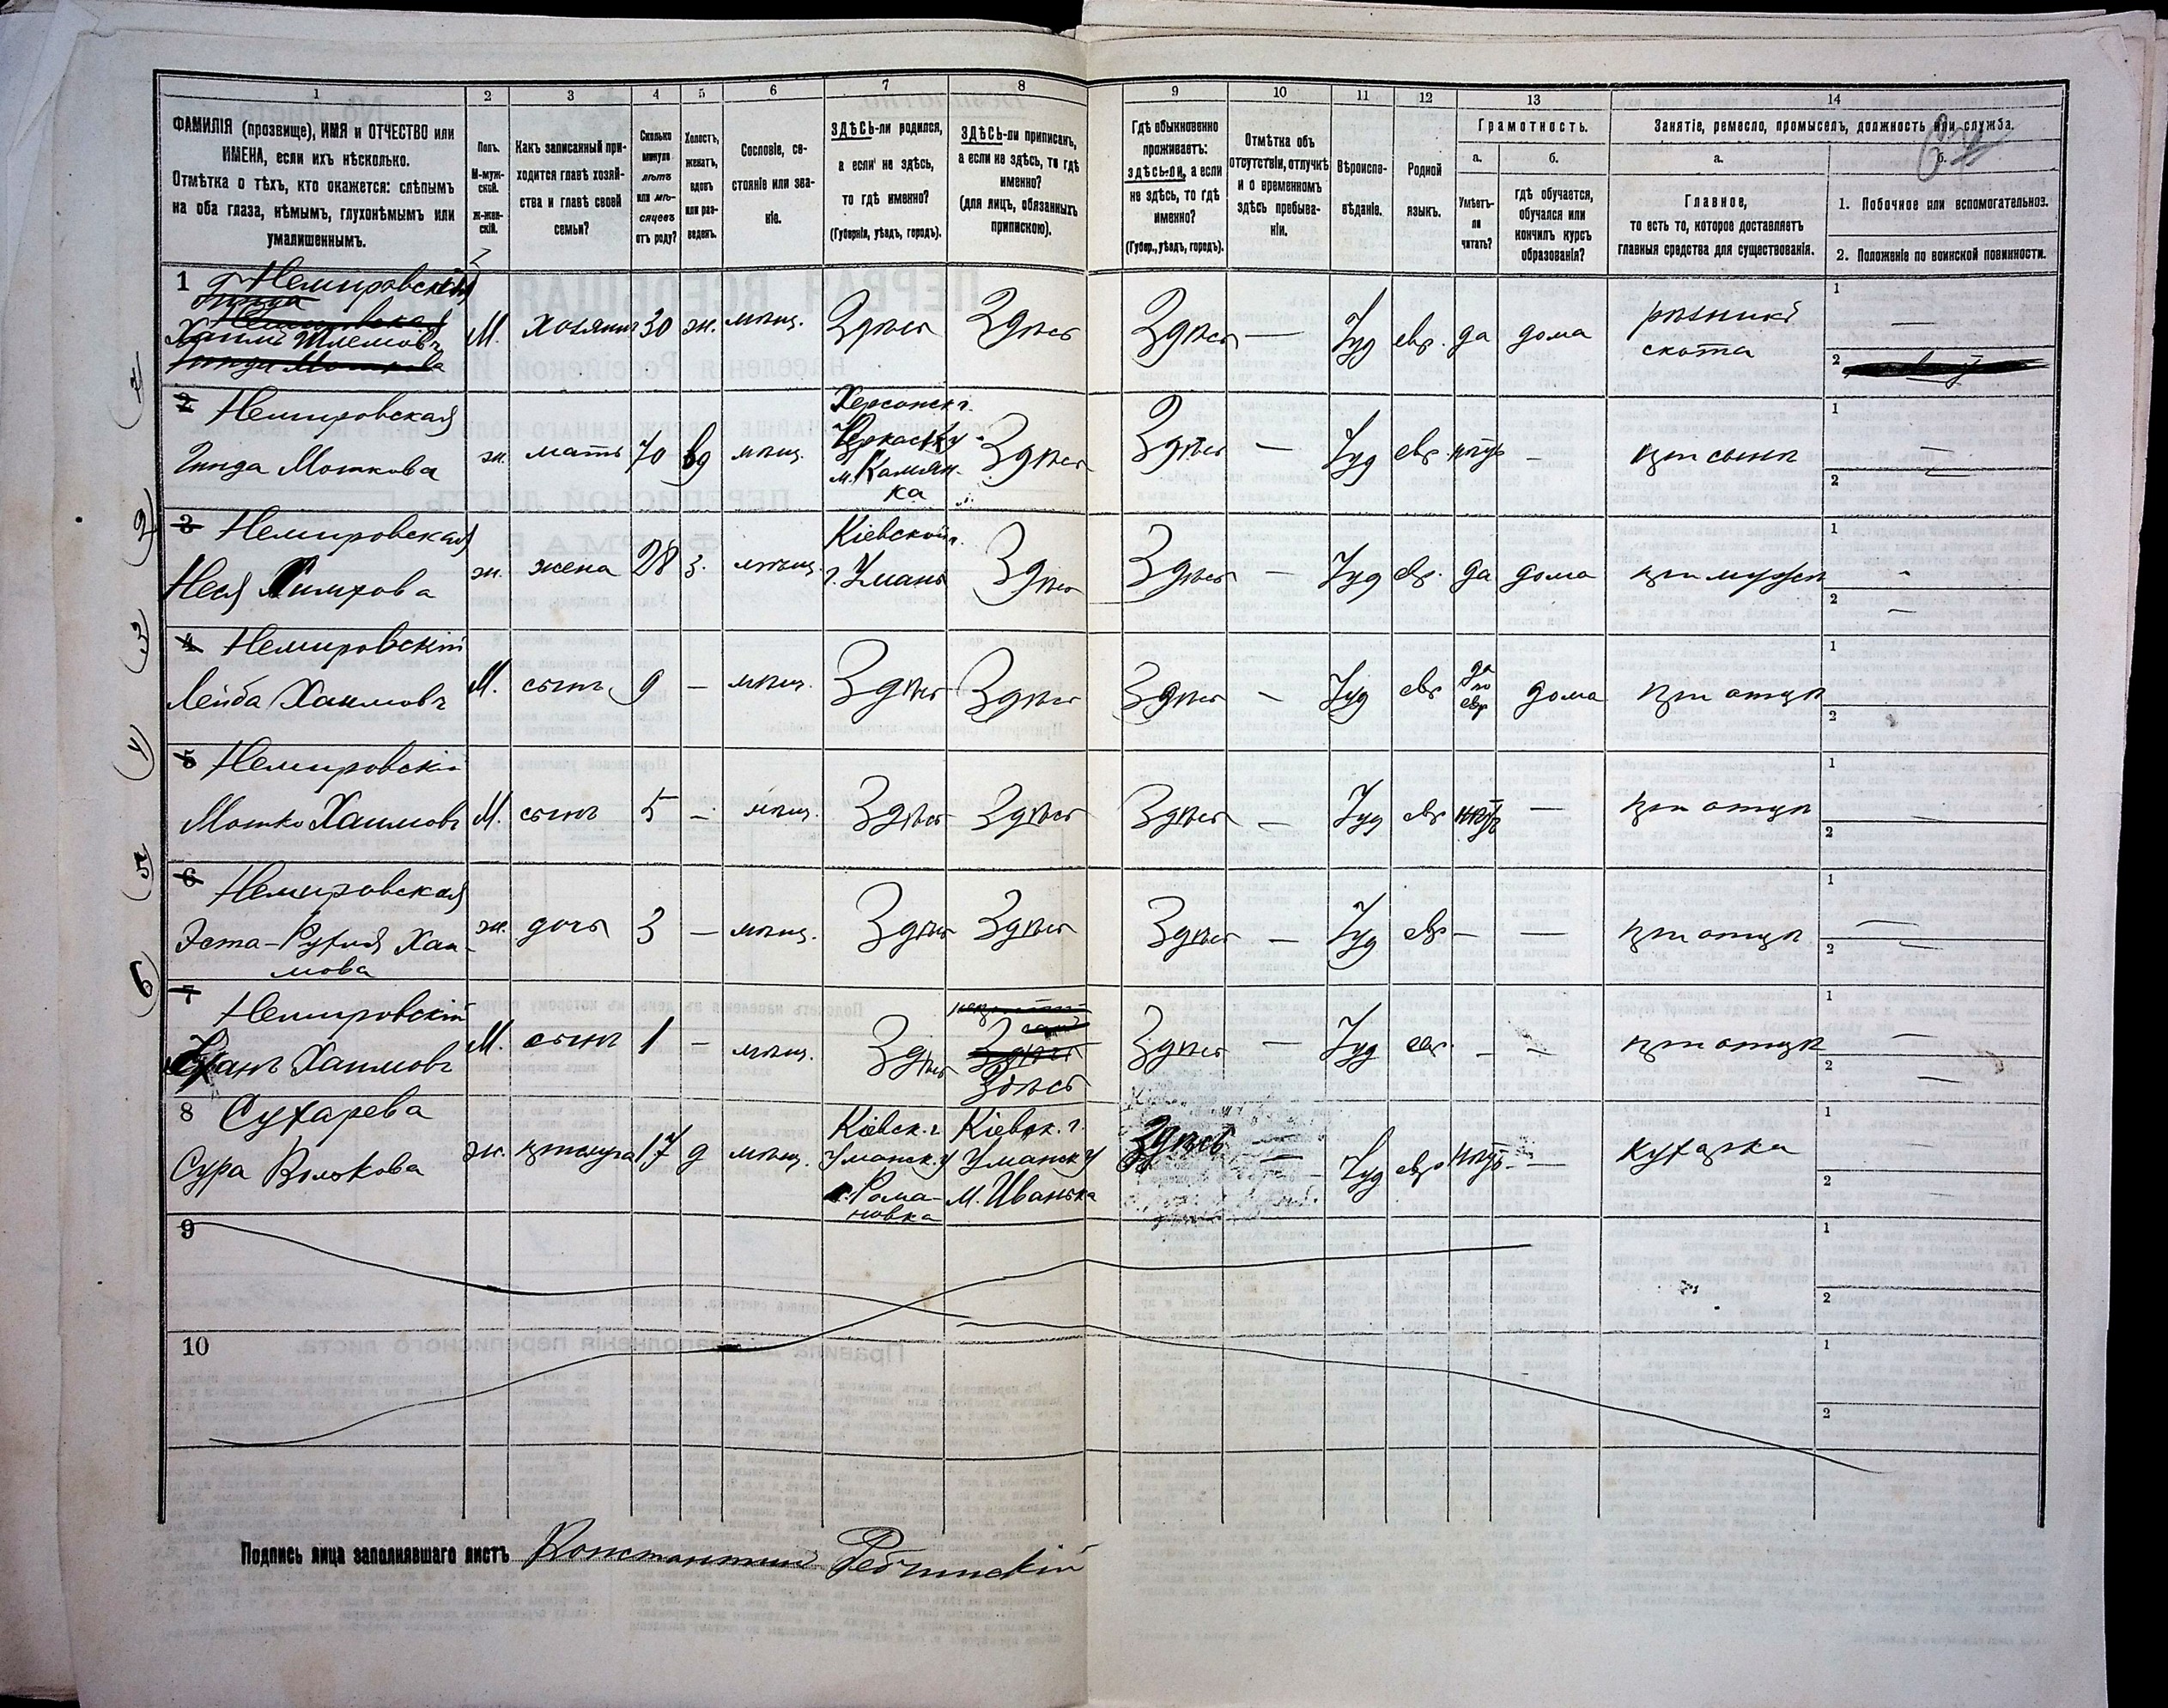 1 2 3 4 5 6 7 8 9 10 11 12 13 14
ФАМИЛІЯ (прозвище), ИМЯ и ОТЧЕСТВО или
ИМЕНА, если ихъ нѣсколько.
Отмѣтка о тѣхъ, кто окажется: слѣпымъ
на оба глаза, нѣмымъ, глухонѣмымъ или
умалишеннымъ.
Полъ.
М-муж-
ской.
ж-жен-
скій.
Какъ записанный при-
ходится главѣ хозяй-
ства и главѣ своей
семьи?
Сколько
минуло
лѣтъ
или мѣ-
сяцевъ
отъ роду?
Холостъ,
женатъ,
вдовъ
или раз-
веденъ.
Сословіе, со-
стояніе или зва-
ніе.
ЗДѢСЬ-ли родился,
а если не здѣсь,
то гдѣ именно?
(Губернія, уѣздъ, городъ).
ЗДѢСЬ-ли приписанъ,
а если не здѣсь, то гдѣ
именно?
(для лицъ, обязанныхъ
припискою).
Гдѣ обыкновенно
проживаетъ:
здѣсь-ли, а если
не здѣсь, то гдѣ
именно?
(Губер., уѣздъ, городъ).
Отмѣтка объ
отсутствіи, отлучкѣ
и о временномъ
здѣсь пребыва-
ніи.
Вѣроиспо-
вѣданіе.
Родной
языкъ.
Грамотность.
а.
Умѣетъ-
ли
читать?
б.
гдѣ обучается,
обучался или
кончилъ курсъ
образованія?
Занятіе, ремесло, промыселъ, должность или служба.
а.
Главное,
то есть то, которое доставляетъ
главныя средства для существованія.
б.
1. Побочное или вспомогательное.
2. Положеніе по воинской повинности.
1 Немировскій
Хаимъ Шлемовъ
М. хозяинъ 30 ж. мѣщ. Здѣсь Здѣсь Здѣсь — Іуд евр. да дома рѣзникъ
скота
1 —
2
2 Немировская
Гинда Мошкова
ж. мать 70 вд мѣщ.
Херсонск г.
м. Камян-
ка
Здѣсь Здѣсь — Іуд евр нѣтъ — при сынѣ
1 —
2 —
3 Немировская
Неся
ж. жена 28 з. мѣщ.
Кіевской г.
г. Умань
Здѣсь Здѣсь — Іуд евр. да дома при мужѣ
1 -
2 —
4 Немировскій
Лейба Хаимовъ
М. сынъ 9 — мѣщ. Здѣсь Здѣсь Здѣсь — Іуд евр
да
по
евр
дома при отцѣ
1
2
5 Немировскій
Мошко Хаимовъ
М. сынъ 5 — мѣщ. Здѣсь Здѣсь Здѣсь — Іуд евр нѣтъ — при отцѣ
1
2
6 Немировская
Эста-Рухля Хаи-
мова
ж. дочь 3 — мѣщ. Здѣсь Здѣсь Здѣсь — Іуд евр — — при отцѣ
1 —
2 —
7 Немировскій
Хаимовъ
М. сынъ 1 — мѣщ. Здѣсь
Здѣсь
Здѣсь
Здѣсь — Іуд евр. — — при отцѣ
1 —
2 —
8 Сухарева
Сура Волькова
ж. прислуга 17 д мѣщ.
Кіевск. г.
Уманск. у
с. Рома-
новка
Кіевск. г.
Уманск у
м. Иванька
Здѣсь — Іуд евр нѣтъ — кухарка
1
2
9
1
2
10
1
2
(1)
(2)
(3)
(4)
(5)
(6)
Подпись лица заполнявшаго листъ Константинъ